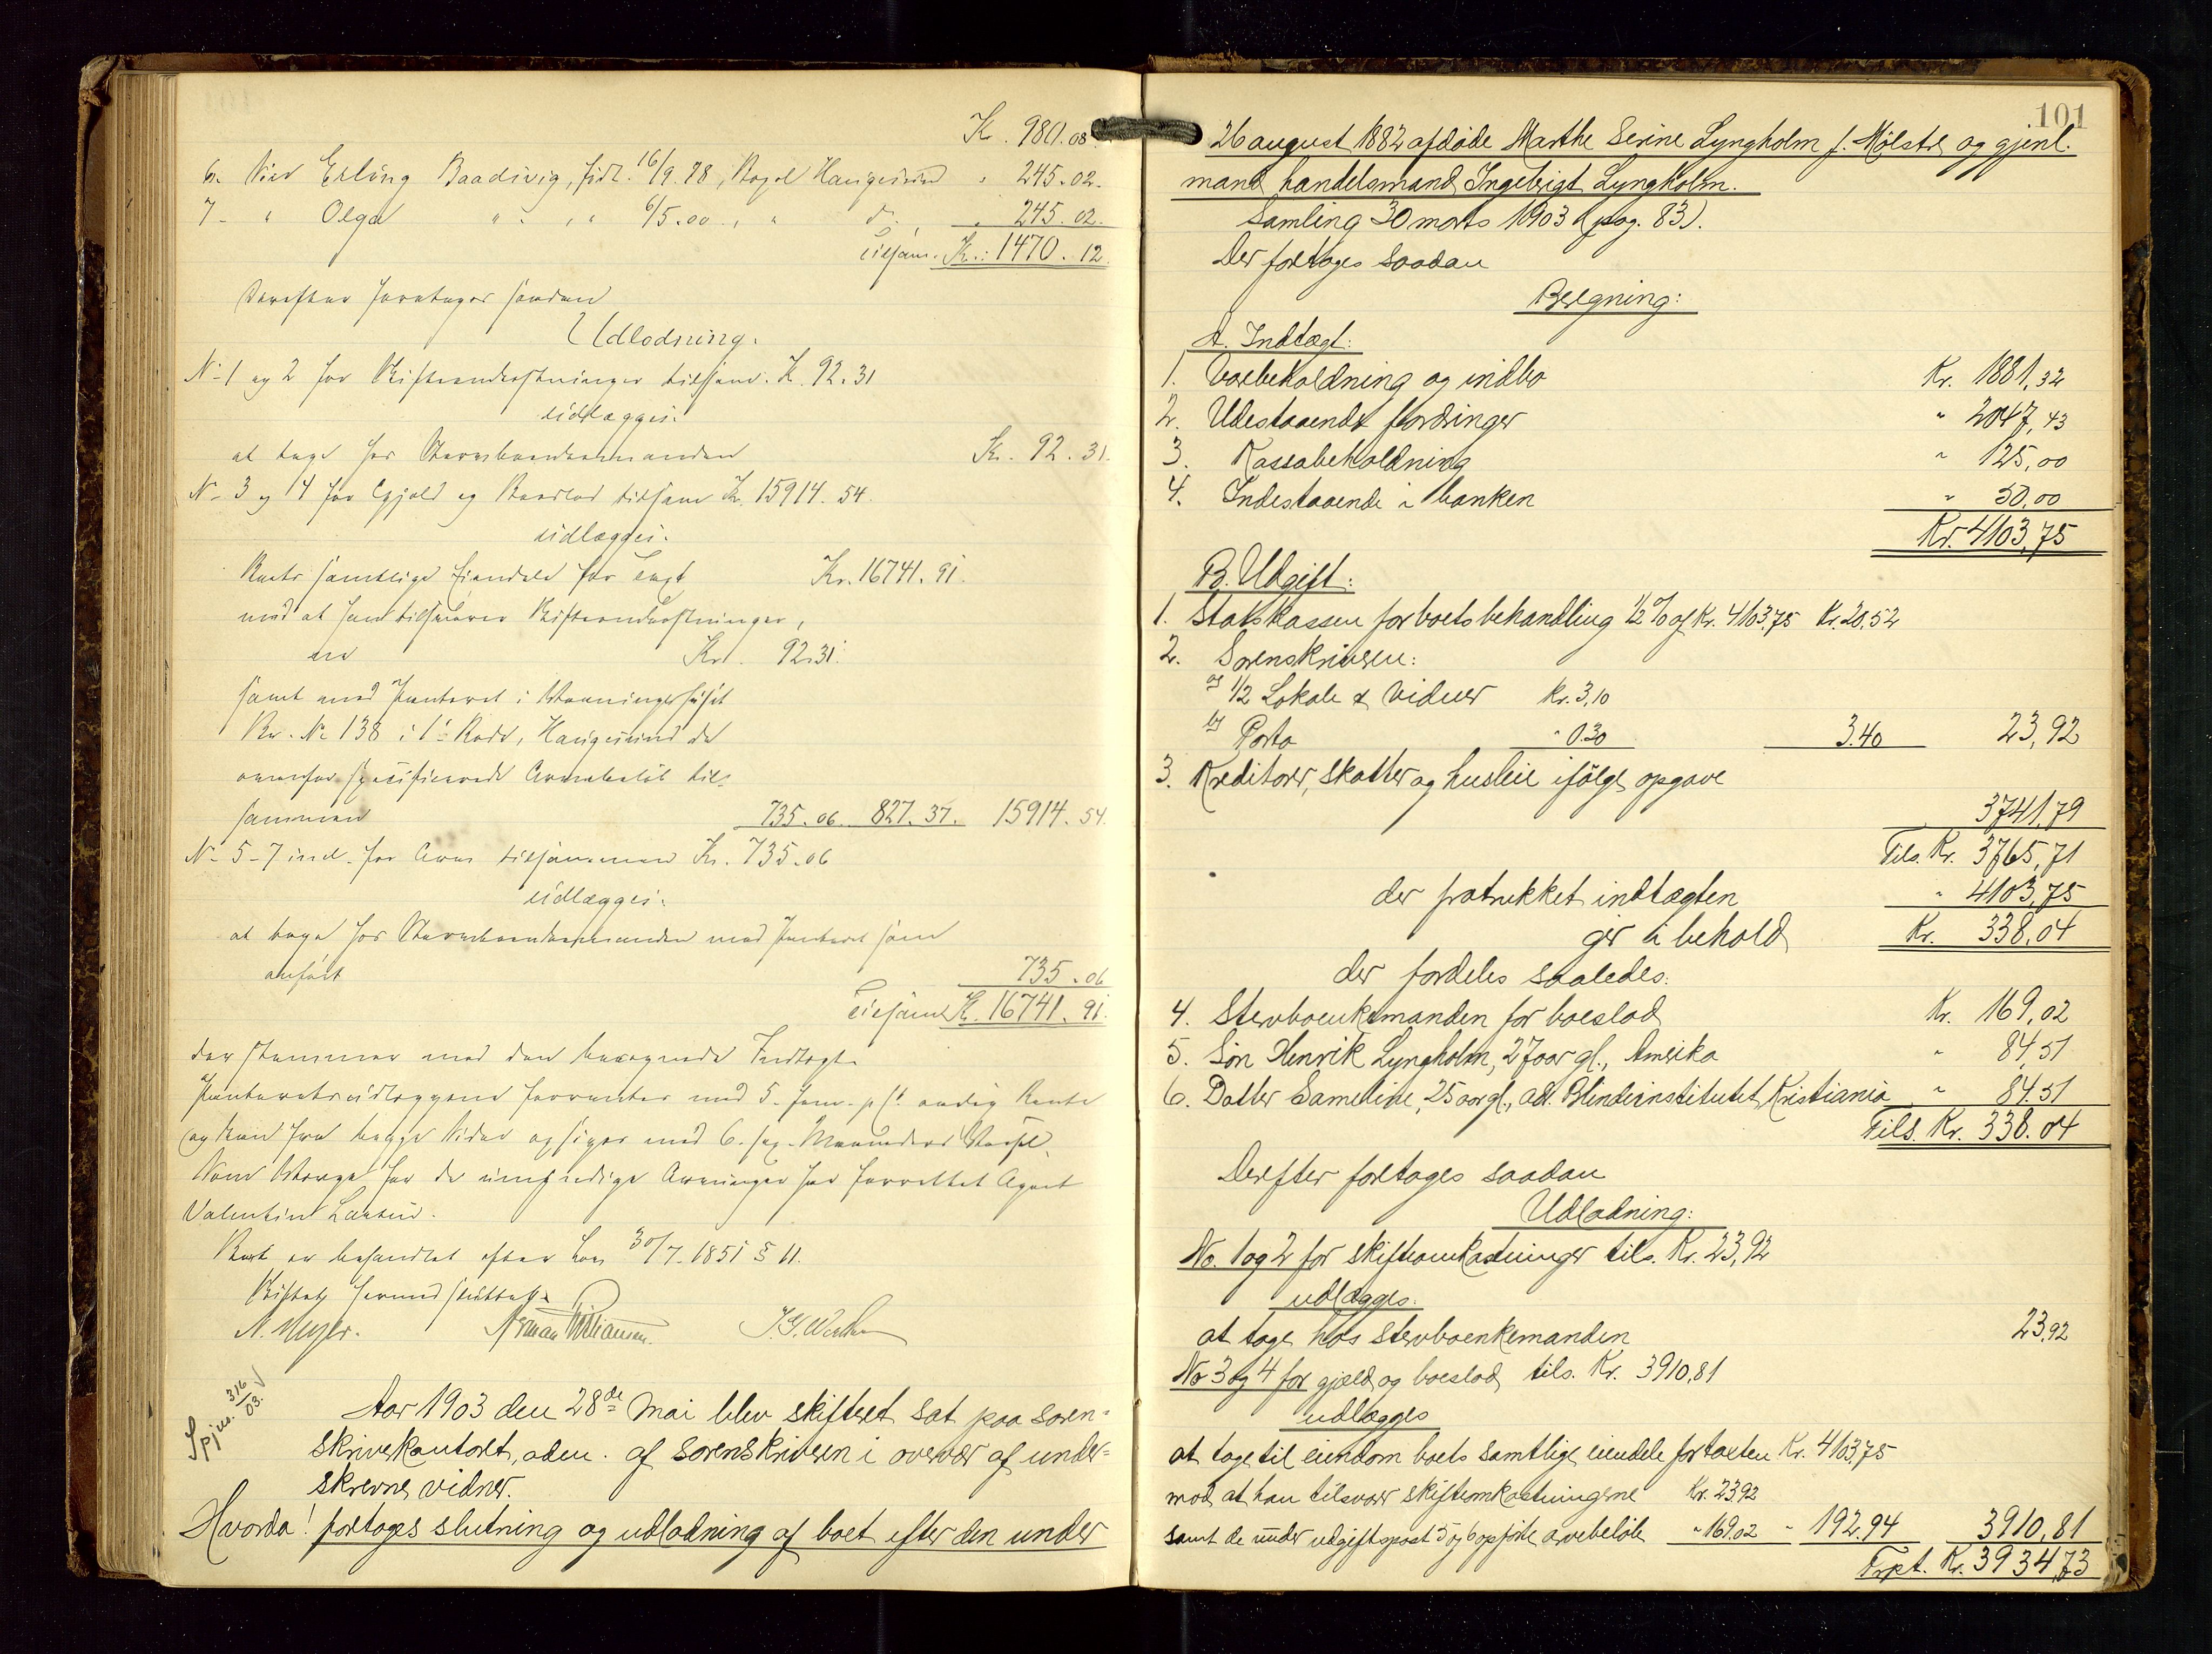 Kr. 980.08.
6. Erling Baadsvig, født 16/9. 78, Haugesund " 245.02.
7 - " Olga " " , " 6/5.00 , " d. " 245.02.
tilsam. Kr.: 1470.12.
Derefter foretages saadan
Udlodning.
No 1 og 2 for Skifteomkostninger tilsam. K. 92.31
udlægges:
at tage hos Stervboenkemanden Kr. 92.31.
No 3 og 4 for Gjæld og Boeslod tilsam Kr. 15914.54.
udlægges:
Boets samtlige Eiendele for Taxt Kr. 16741.91.
mod at han tilsvarer Skifteomkostninger,
Kr. 92.31.
samt mod Panteret i Vaaningshuset
Br. No 138 i 1' Rode, Haugesund de
ovenfor specificerede Arvebeløb til-
sammen 735.06. 827.37. 15914.54.
No 5-7 incl. for Arv tilsammen Kr. 735.06
udlægges:
at tage hos Stervboenkemanden mod Panteret som
anført 735.06
Tilsam. K. 16741.91.
der stemmer med den beregnede Indtægt.
Panteretsudlæggene forrentes med 5 - fem - p ct. aarlig Rente
og kan fra begge Sider opsiges med 6 - sex - Maaneders Varsel.
Som Værge for de umyndige Arvinger har forrettet Agent
Valentin Larsen.
Boet er behandlet efter Lov 30/7-1851 § 11.
Skiftet hermed sluttet.
N. Meyer.
Spjw. 3/6 03.
Aar 1903 den 28de mai blev skifteret sat paa soren-
skriverkontoret, adm. af sorenskriveren i overvær af under-
skrevne vidner.
Hvorda! foretages slutning og udlodning af boet efter den under
101
26 august 1882 afdøde Marthe Serine Lyngholm f. Mølstre og gjenl.
mand handelsmand Ingebrigt Lyngholm.
Samling 30 marts 1903 (pag. 83).
Der foretages saadan
Beregning:
A. Indtægt:
1. Varebeholdning og indbo Kr. 1881,32
2. Udestaaende fordringer " 2047,43
3. Kassabeholdning " 125,00
4. Indestaaende i banken " 50,00
Kr. 4103,75
B. Udgift:
1. Statskassen for boets behandling 1/2 % af Kr. 4103,75 Kr. 20,52
2. Sorenskriveren:
a) 1/2 Lokale & Vidner Kr. 3,10
b) Porto " 0.30 3.40 23,92
3. Kreditorer, skatter og husleie ifølge opgave
3741,79
Tils. Kr. 3765,71
der fratrukket indtægten " 4103,75
gir i behold Kr. 338,04
der fordeles saaledes:
4. Stervboenkemanden for boeslod Kr. 169,02
5. Søn Henrik Lyngholm, 27 aar gl., Amerika " 84,51
6. Datter Sameline, 25 aar gl., adr. Blindeinstitutet, Kristiania " 84.51
Tils. Kr. 338.04
Derefter foretages saadan
Udlodning:
No. 1 og 2 for skifteomkostninger tils. Kr. 23,92
udlægges:
at tage hos stervboenkemanden 23,92
No 3 og 4 for gjæld og boeslod tils. Kr. 3910,81
udlægges
at tage til eiendom boets samtlige eiendele for taxten Kr. 4103,75
mod at han tilsvarer skifteomkostningerne Kr. 23,92
samt de under udgiftspost 5 og 6 opførte arvebeløb " 169.02 " 192.94 3910,81
Trpt. Kr. 3934,73